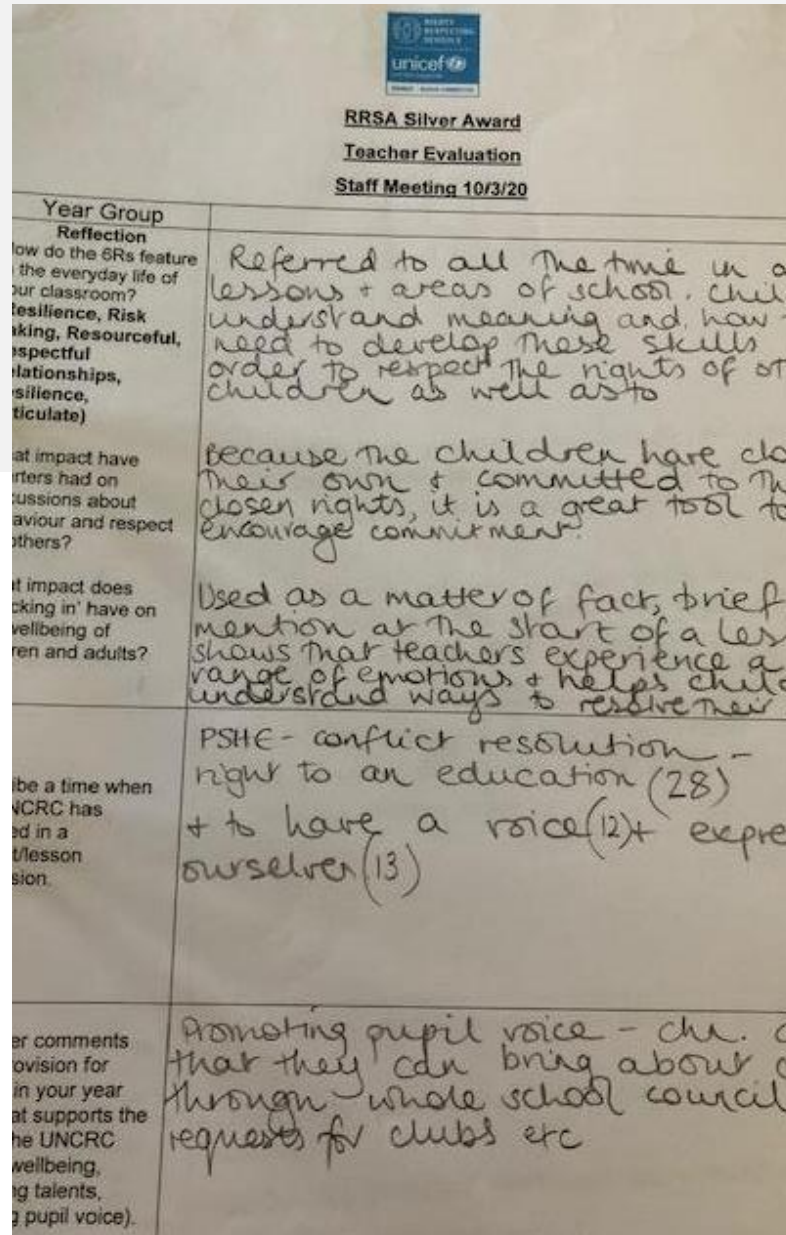 RIGHTS
RESPECTING
SCHOOLS
unicef
RRSA Silver Award
Teacher Evaluation
Staff Meeting 10/3/20
Year Group
Reflection
ow do the 6Rs feature
the everyday life of
ur classroom?
esilience, Risk
aking, Resourceful,
espectful
elationships,
silience,
ticulate)
Referred to all the time in a
lessons + areas of school. Chil
understand meaning and how
need to develop these skills
order to respect the rights of ot
children as well as to
at impact have
rters had on
cussions about
aviour and respect
others?
Because the children have cho
their own & committed to th
chosen rights, it is a great tool to
encourage commitment.
t impact does
cking in' have on
wellbeing of
ren and adults?
Used as a matter of fact, brief
mention at the start of a les
shows that teachers experience a
range of emotions & helps child
understand ways to resolve their
ibe a time when
NCRC has
ed in a
t/lesson
sion.
PSHE - conflict resolution -
right to an education (28)
+ to have a voice (12) + expre
ourselves (13)
er comments
rovision for
in your year
at supports the
he UNCRC
wellbeing,
ng talents,
g pupil voice).
Promoting pupil voice - chn. c
that they can bring about c
through - whole school council
requests for clubs etc